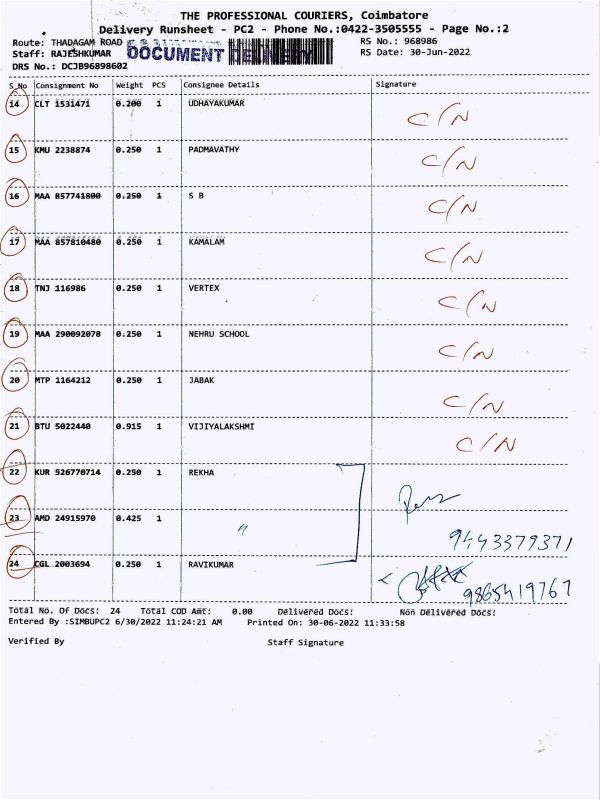 THE PROFESSIONAL COURIERS, Coimbatore
Delivery Runsheet - PC2 - Phone No.:0422-3505555 - Page No.:2
Route: THADAGAM ROAD RS No.: 968986
Staff: RAJESHKUMAR DOCUMENT DELIVERY RS Date: 30-Jun-2022
DRS No.: DCJB96898602
S_No Consignment No Weight PCS Consignee Details Signature
14 CLT 1531471 0.200 1 UDHAYAKUMAR C/N
15 KMU 2238874 0.250 1 PADMAVATHY C/N
16 MAA 857741800 0.250 1 S B C/N
17 MAA 857810480 0.250 1 KAMALAM C/N
18 TNJ 116986 0.250 1 VERTEX C/N
19 MAA 290092078 0.250 1 NEHRU SCHOOL C/N
20 MTP 1164212 0.250 1 JABAK C/N
21 BTU 5022440 0.915 1 VIJIYALAKSHMI C/N
22 KUR 526770714 0.250 1 REKHA
23 AMD 24915970 0.425 1 " 9443379371
24 CGL 2003694 0.250 1 RAVIKUMAR 9865419767
Total No. Of Docs: 24 Total COD Amt: 0.00 Delivered Docs: Non Delivered Docs:
Entered By :SIMBUPC2 6/30/2022 11:24:21 AM Printed On: 30-06-2022 11:33:58
Verified By Staff Signature